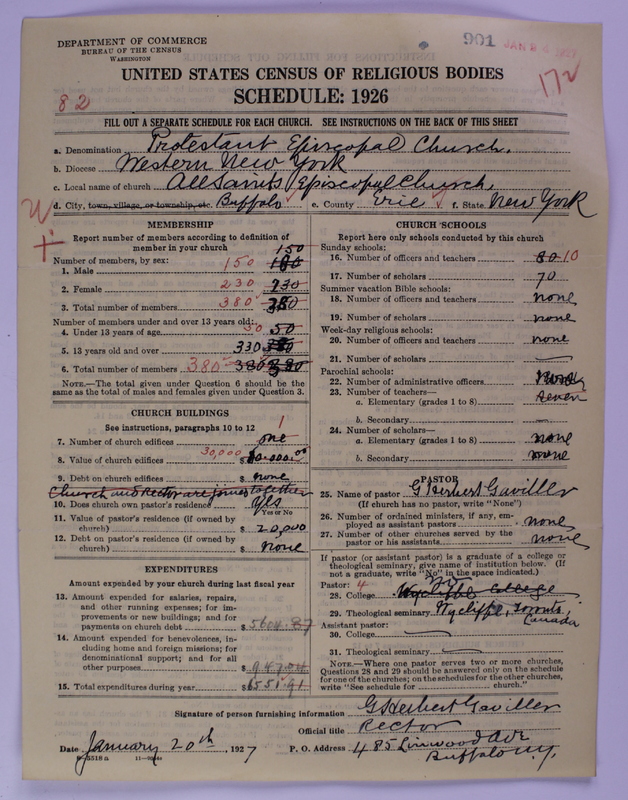 DEPARTMENT OF COMMERCE
BUREAU OF THE CENSUS
WASHINGTON
901 JAN 24 1927
172
82
UNITED STATES CENSUS OF RELIGIOUS BODIES
SCHEDULE: 1926
FILL OUT A SEPARATE SCHEDULE FOR EACH CHURCH. SEE INSTRUCTIONS ON THE BACK OF THIS SHEET
a. Denomination Protestant Episcopal Church.
b. Diocese Western New York
c. Local name of church All Saints Episcopal Church,
d. City, town, village, or township, etc. Buffalo e. County Erie f. State New York
MEMBERSHIP
Report number of members according to definition of
member in your church
Number of members, by sex:
1. Male 150 150
2. Female 230 230
3. Total number of members 380
Number of members under and over 13 years old:
4. Under 13 years of age 50 50
5. 13 years old and over 330
6. Total number of members 380 380
NOTE.—The total given under Question 6 should be the
same as the total of males and females given under Question 3.
CHURCH BUILDINGS
See instructions, paragraphs 10 to 12
7. Number of church edifices one 1
8. Value of church edifices 30,000 $
9. Debt on church edifices $ none
Church and Rector are joined together
10. Does church own pastor's residence? Yes
Yes or No
11. Value of pastor's residence (if owned by
church) $ 20,000
12. Debt on pastor's residence (if owned by
church) $ none
EXPENDITURES
Amount expended by your church during last fiscal year
13. Amount expended for salaries, repairs,
and other running expenses; for im-
provements or new buildings; and for
payments on church debt $ 5604.87
14. Amount expended for benevolences, in-
cluding home and foreign missions; for
denominational support; and for all
other purposes $ 947.04
15. Total expenditures during year $ 6551.91
CHURCH SCHOOLS
Report here only schools conducted by this church
Sunday schools:
16. Number of officers and teachers 80 10
17. Number of scholars 70
Summer vacation Bible schools:
18. Number of officers and teachers none
19. Number of scholars none
Week-day religious schools:
20. Number of officers and teachers none
21. Number of scholars
Parochial schools:
22. Number of administrative officers
23. Number of teachers—
a. Elementary (grades 1 to 8) seven
b. Secondary
24. Number of scholars—
a. Elementary (grades 1 to 8) none
b. Secondary none
PASTOR
25. Name of pastor G Herbert Gaviller
(If church has no pastor, write "None")
26. Number of ordained ministers, if any, em-
ployed as assistant pastors none
27. Number of other churches served by the
pastor or his assistants none
If pastor (or assistant pastor) is a graduate of a college or
theological seminary, give name of institution below. (If
not a graduate, write "No" in the space indicated.)
Pastor: 4
28. College Wycliffe College
29. Theological seminary Wycliffe, Toronto,
Canada
Assistant pastor:
30. College
31. Theological seminary
NOTE.—Where one pastor serves two or more churches,
Questions 28 and 29 should be answered only on the schedule
for one of the churches; on the schedules for the other churches,
write "See schedule for church."
Signature of person furnishing information G Herbert Gaviller
Official title Rector
Date January 20th, 1927 P. O. Address 485 Linwood Ave
Buffalo N.Y.